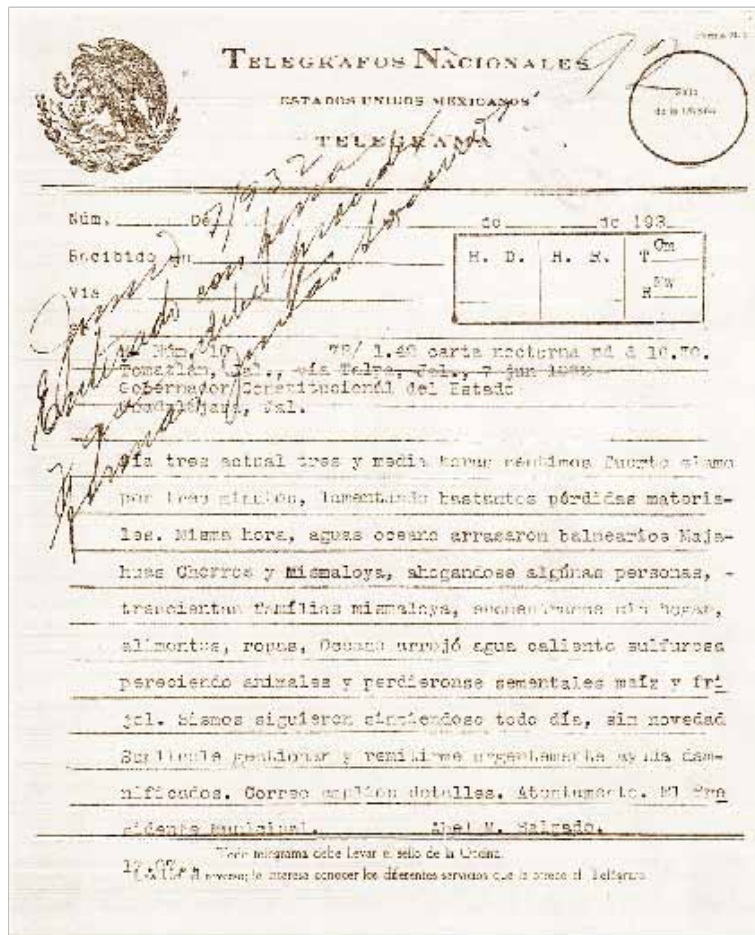 TELEGRAFOS NACIONALES
ESTADOS UNIDOS MEXICANOS
TELEGRAMA
Sello
de la Oficina
92
Núm. De de de 193
Recibido en
Vía
H. D. H. R. T Om
R Nw
Junio 7/932
Enterado con
4 Núm. 10 78/ 1.48 carta nocturna pd d 10.70.
Tomatlán, Jal., vía Talpa, Jal., 7 jun 1932
Gobernador Constitucional del Estado
Guadalajara, Jal.
Día tres actual tres y media horas sentimos fuerte sismo
por tres minutos, lamentando bastantes pérdidas materia-
les. Misma hora, aguas oceano arrasaron balnearios Maja-
huas Chorros y Mismaloya, ahogandose algúnas personas, -
trescientas famílias mismaloya, encuentranse sin hogar,
alimentos, ropas, Oceano arrojó agua caliente sulfurosa
pereciendo animales y perdieronse sementales maíz y fri
jol. Sismos siguieron sintiendose todo día, sin novedad
Suplicole gestionar y remitirme urgentemente ayuda dam-
nificados. Correo amplíen detalles. Atentamente. El Pre
sidente Municipal. Abel M. Salgado.
Todo telegrama debe llevar el sello de la Oficina.
el reverso; le interesa conocer los diferentes servicios que le ofrece el Telégrafo